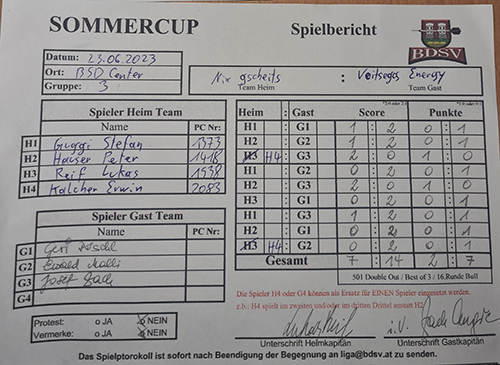 SOMMERCUP Spielbericht
BDSV
Datum: 23.06.2023
Ort: BSD Center
Gruppe: 3
Nix gscheits : Voitsegas Energy
Team Heim Team Gast
Spieler Heim Team
Name PC Nr:
H1 Guggi Stefan 1373
H2 Hauser Peter 1418
H3 Reif Lukas 1938
H4 Kalcher Erwin 2083
Spieler Gast Team
Name PC Nr:
G1 Gert
G2 Ewald
G3 Josef
G4
Heim : Gast Score Punkte
H1 : G1 1 : 2 0 : 1
H2 : G2 1 : 2 0 : 1
H3 H4 : G3 2 : 0 1 : 0
H1 : G2 0 : 2 0 : 1
H2 : G3 2 : 0 1 : 0
H3 : G1 0 : 2 0 : 1
H1 : G3 1 : 2 0 : 1
H2 : G1 0 : 2 0 : 1
H3 H4 : G2 0 : 2 0 : 1
Gesamt 7 : 14 2 : 7
501 Double Out / Best of 3 / 16.Runde Bull
Die Spieler H4 oder G4 können als Ersatz für EINEN Spieler eingesetzt werden.
z.b.: H4 spielt im zweiten und/oder im dritten Drittel anstatt H2
Protest: o JA o NEIN
Vermerke: o JA o NEIN
i.V.
Unterschrift Heimkapitän Unterschrift Gastkapitän
Das Spielptorokoll ist sofort nach Beendigung der Begegnung an liga@bdsv.at zu senden.